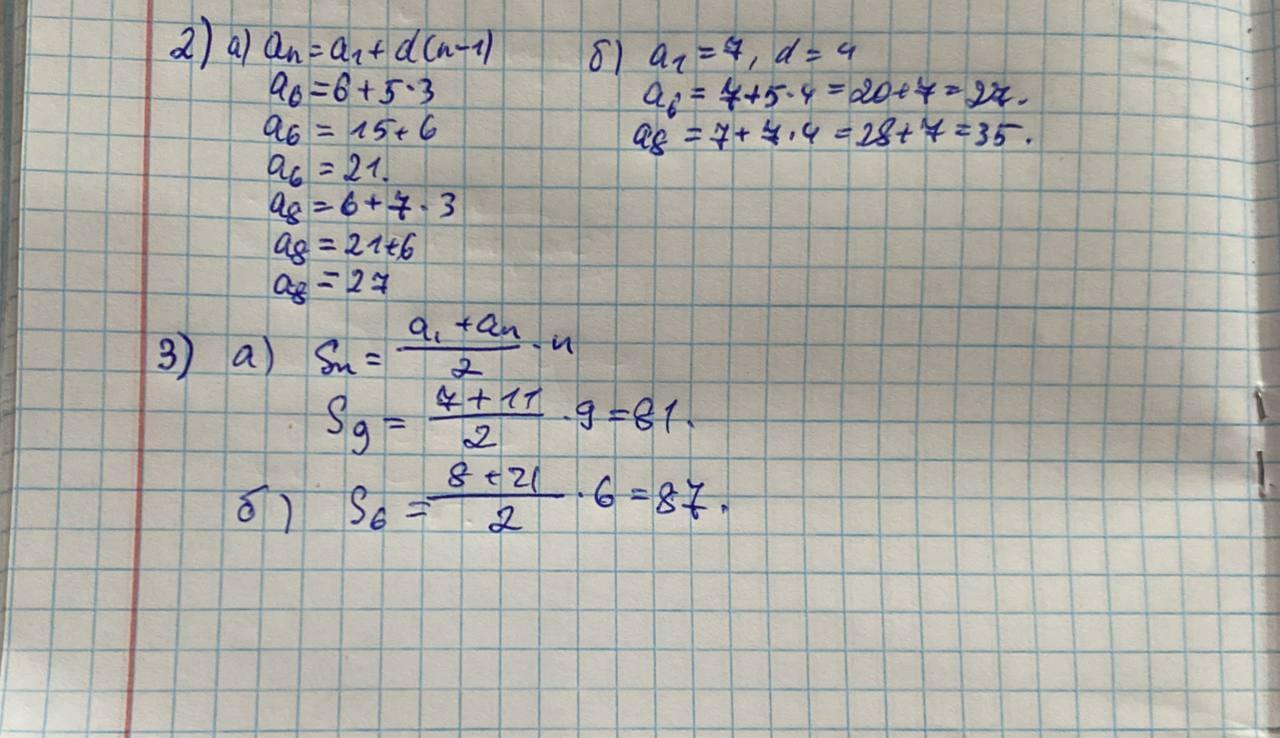 2) а) an = a1 + d(n-1)
a6 = 6 + 5·3
a6 = 15 + 6
a6 = 21.
a8 = 6 + 7·3
a8 = 21 + 6
a8 = 27
б) a1 = 7, d = 4
a6 = 7 + 5·4 = 20 + 7 = 27.
a8 = 7 + 7·4 = 28 + 7 = 35.
3) а) Sn = (a1 + an)/2 · n
S9 = (7 + 11)/2 · 9 = 81.
б) S6 = (8 + 21)/2 · 6 = 87.